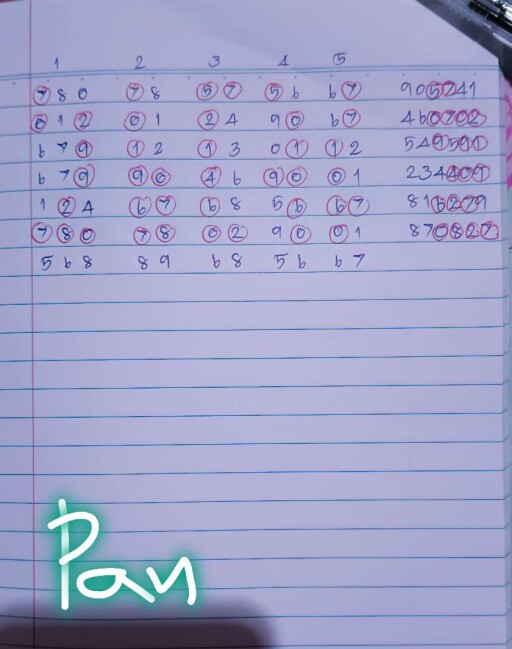 1 2 3 4 5
7 8 0 7 8 5 7 5 6 6 7 905741
0 1 2 0 1 2 4 9 0 6 7 460702
6 7 9 1 2 1 3 0 1 1 2 549591
6 7 9 9 0 4 6 9 0 0 1 234409
1 2 4 6 7 6 8 5 6 6 7 816279
7 8 0 7 8 0 2 9 0 0 1 870827
5 6 8 8 9 6 8 5 6 6 7
Pan